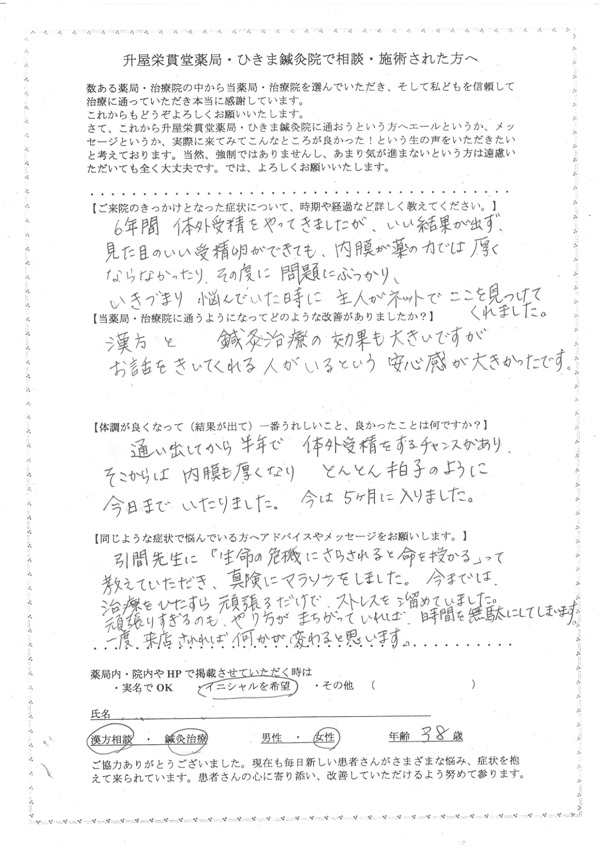 升屋栄貫堂薬局・ひきま鍼灸院で相談・施術された方へ
数ある薬局・治療院の中から当薬局・治療院を選んでいただき、そして私どもを信頼して
治療に通っていただき本当に感謝しています。
これからもどうぞよろしくお願いいたします。
さて、これから升屋栄貫堂薬局・ひきま鍼灸院に通おうという方へエールというか、メッ
セージというか、実際に来てみてこんなところが良かった！という生の声をいただきたい
と考えております。当然、強制ではありませんし、あまり気が進まないという方は遠慮い
ただいても全く大丈夫です。では、よろしくお願いいたします。
【ご来院のきっかけとなった症状について、時期や経過など詳しく教えてください。】
6年間 体外受精をやってきましたが、いい結果が出ず、
見た目のいい受精卵ができても、内膜が薬の力では厚く
ならなかったり、その度に問題にぶつかり、
いきづまり 悩んでいた時に 主人がネットで ここを見つけて
くれました。
【当薬局・治療院に通うようになってどのような改善がありましたか？】
漢方と 鍼灸治療の効果も大きいですが
お話をきいてくれる人がいるという 安心感が大きかったです。
【体調が良くなって（結果が出て）一番うれしいこと、良かったことは何ですか？】
通い出してから半年で 体外受精をするチャンスがあり、
そこからは 内膜も厚くなり とんとん拍子のように
今日まで いたりました。 今は5ヶ月に入りました。
【同じような症状で悩んでいる方へアドバイスやメッセージをお願いします。】
引間先生に「生命の危機にさらされると命を授かる」って
教えていただき、真険にマラソンをしました。今までは、
治療をひたすら頑張るだけで、ストレスを溜めていました。
頑張りすぎるのも、やり方がまちがっていれば、時間を無駄にしてしまいます。
一度 来店されれば 何かが変わると思います。
薬局内・院内やHPで掲載させていただく時は
・実名でOK ・イニシャルを希望 ・その他 （ ）
氏名
漢方相談 ・ 鍼灸治療 男性 ・ 女性 年齢 38 歳
ご協力ありがとうございました。現在も毎日新しい患者さんがさまざまな悩み、症状を抱
えて来られています。患者さんの心に寄り添い、改善していただけるよう努めて参ります。